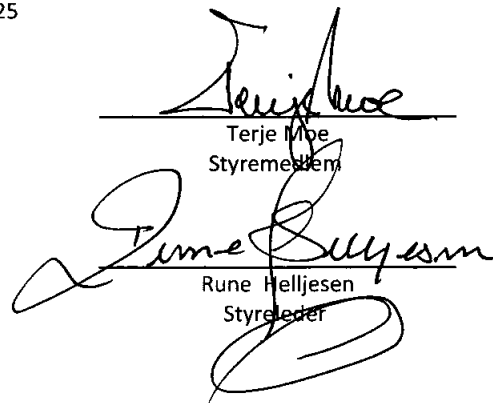 25
Terje Moe
Terje Moe
Styremedlem
Rune Helljesen
Rune Helljesen
Styreleder